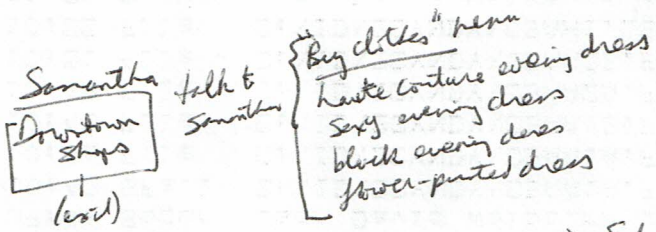 Samantha
Downtown
Shops
talk to
Samantha
"Buy clothes" menu
haute couture evening dress
sexy evening dress
black evening dress
flower-printed dress